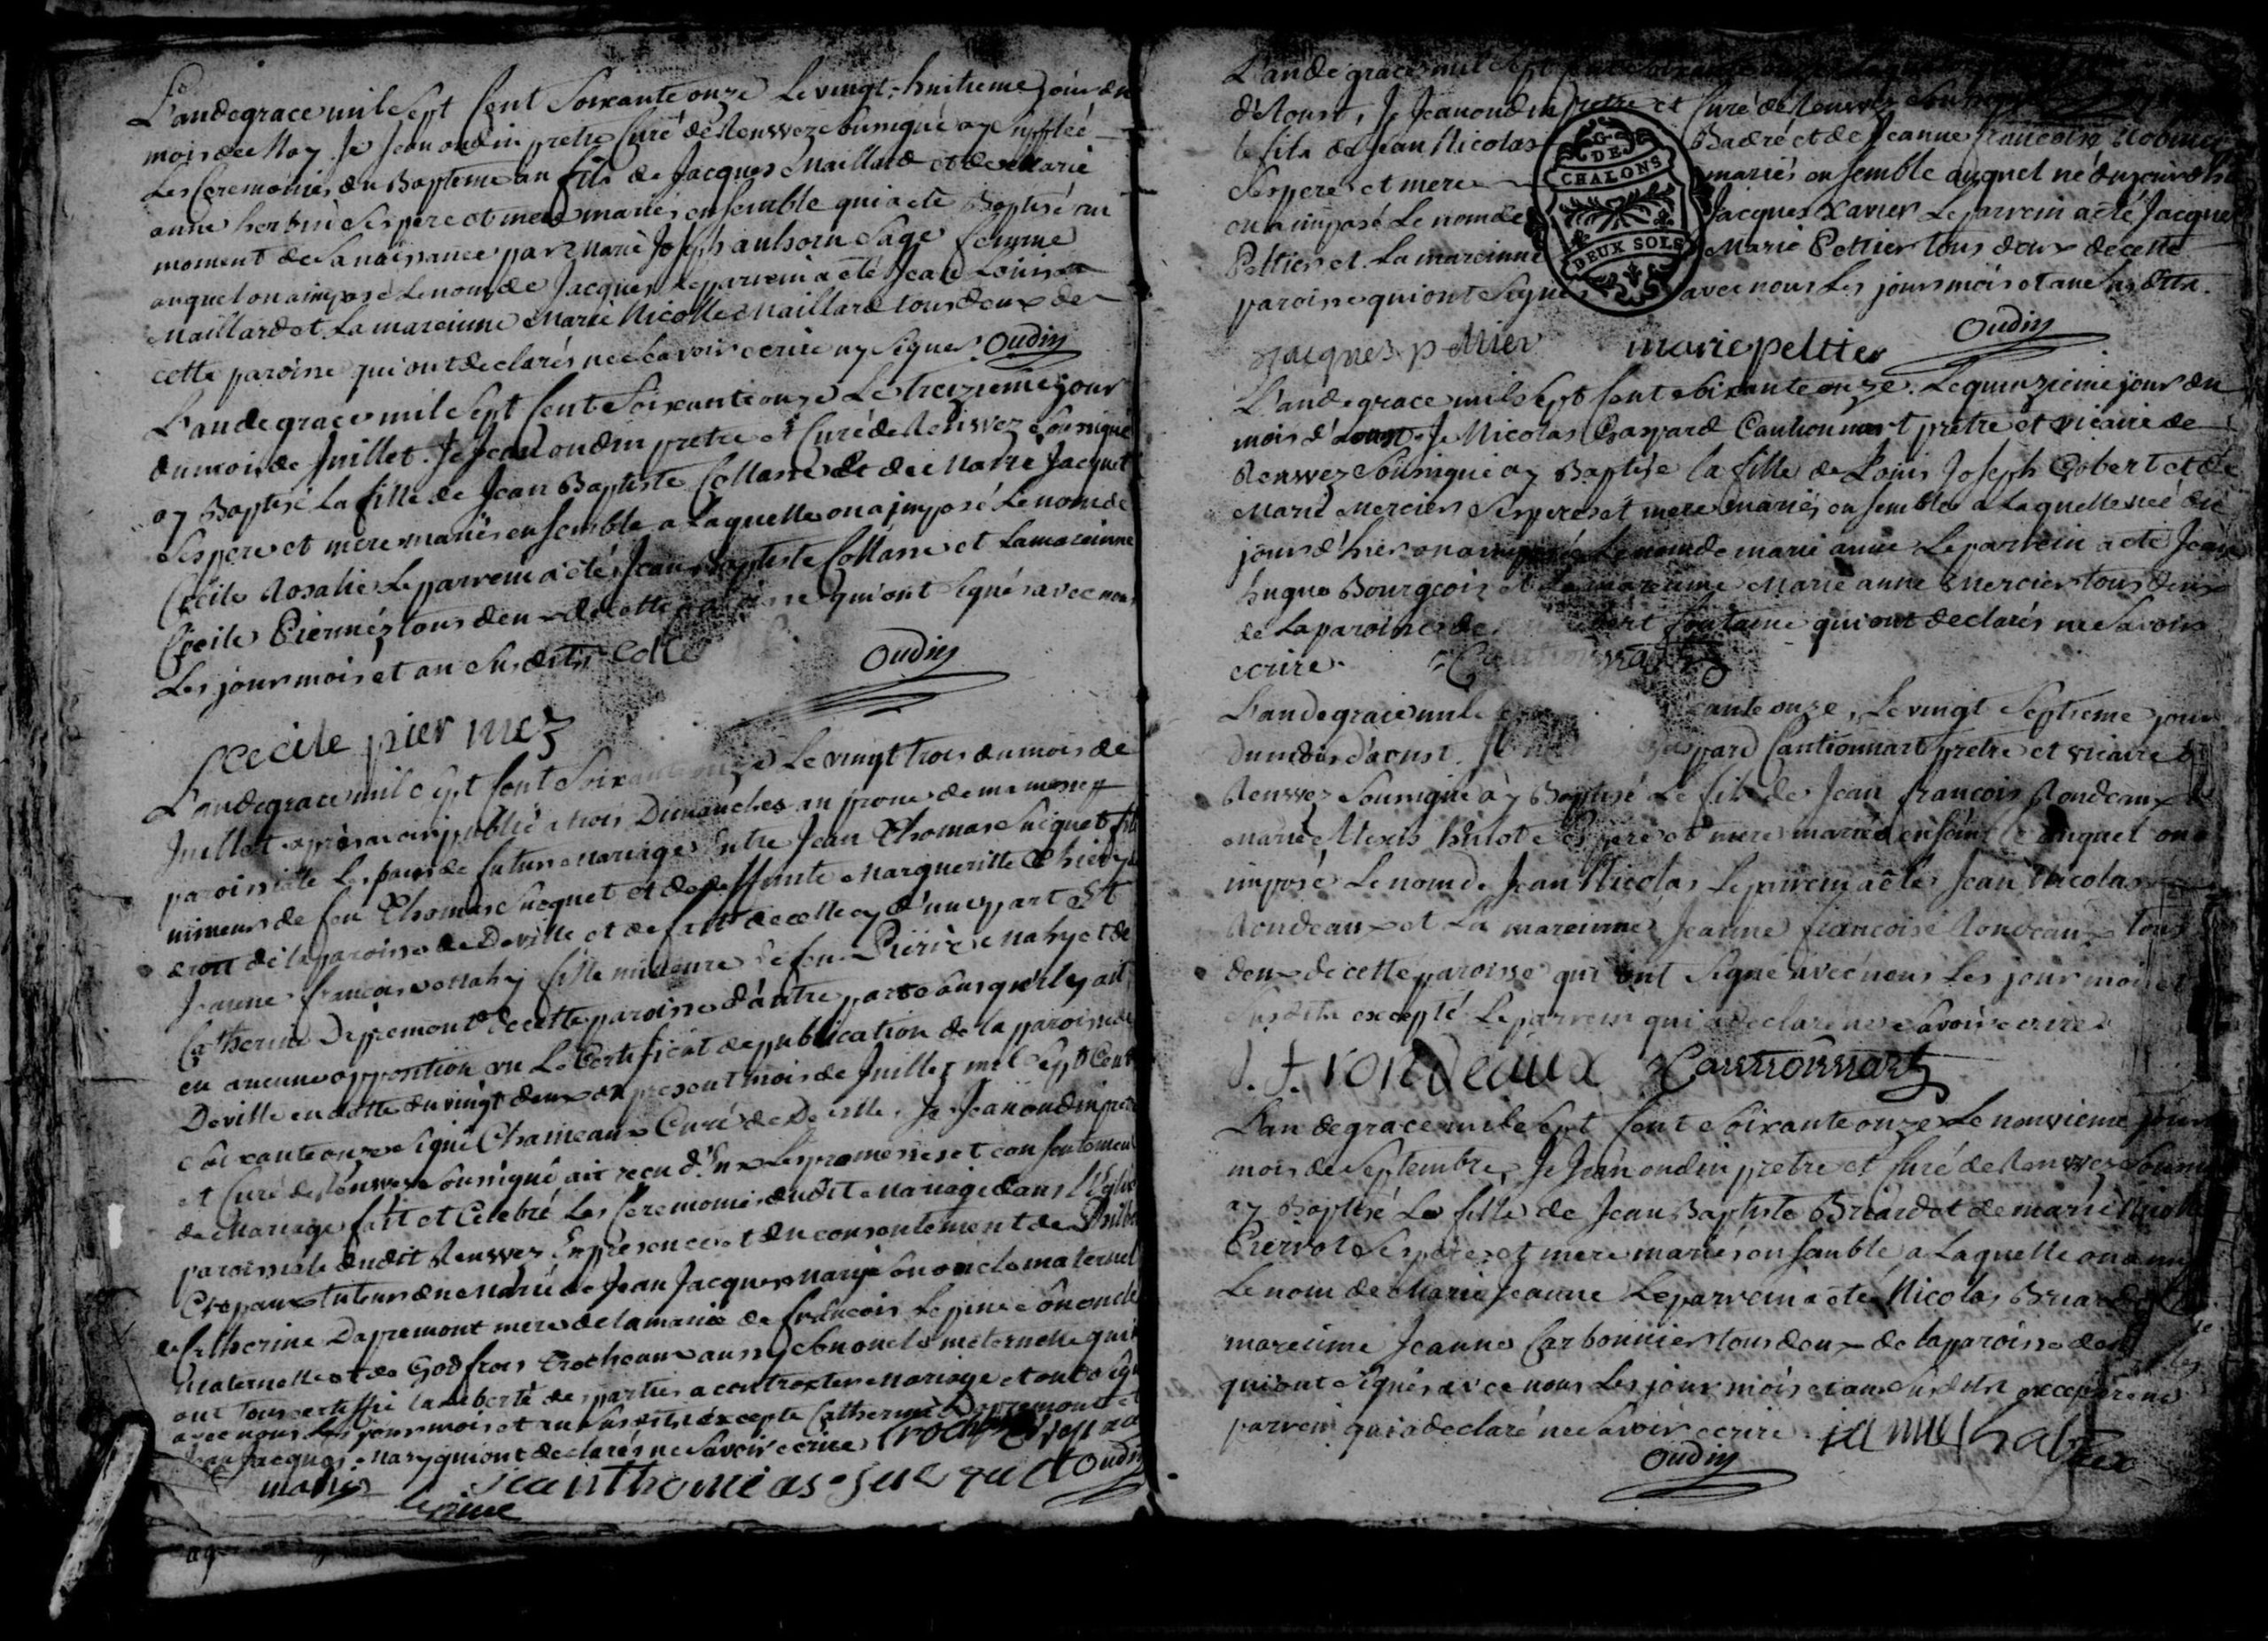 L'an de grace mil Sept Cent Soixante onze Le vingt-huitieme jour du
mois de May Je Jean oudin pretre Curé de Renwez Sousigné ay Supplée
Les Ceremonies du Bapteme au fils de Jacques Maillard et de Marie
anne Ses pere et mere mariés ensemble qui a été Baptisé au
moment de Sa naissance par Marie Joseph Sage femme
auquel on a imposé Le nom de Jacques Le parrein a été Jean Louis
Maillard et La mareinne Marie Nicolle Maillard tous deux de
cette paroisse qui ont declarés ne Scavoir ecrire ny Signer. Oudin
L'an de grace mil Sept Cent Soixante onze Le treizieme jour
du mois de Juillet. Je Jean oudin pretre et Curé de Renwez Sousigné
ay Baptisé La fille de Jean Baptiste Collasse et de Marie Jacquet
Ses pere et mere mariés ensemble a Laquelle on a imposé Le nom de
Cécile Rosalie Le parrein a été Jean Baptiste Collasse et La mareinne
Cécile Piermez tous deux de cette qui ont Signés avec nous
Les jour mois et an Susdits Oudin
Cecile pier mez
L'an de grace mil Sept Cent Soixante onze Le vingt trois du mois de
Juillet après avoir publié a trois Dimanches au prone de ma messe
paroissiale Les bans de futur Mariage Entre Jean Thomas Sucquet fils
mineur de feu Thomas Sucquet et de deffunte Margueritte
droit de la paroisse de Deville et de fait de celle cy d'une part Et
Jeanne francoise Mahy fille mineure de feu Pierre Mahy et de
Catherine Dapremont de cette paroisse d'autre part Sans qu'il y ait
eu aucune opposition vu Le Certificat de publication de la paroisse de
Deville en datte du vingt deux du present mois de Juillet mil Sept Cent
Soixante onze Signé Chameaux Curé de Deville, Je Jean oudin pretre
et Curé de Renwez Sousigné ait recu d'Eux Les promesses et consentement
de Mariage fait et Celebré Les Ceremonies dudit Mariage dans L'Eglise
paroissiale dudit Renwez En presence et du consentement de
tuteur du Marié de Jean Jacques Son oncle maternel
de Catherine Dapremont mere de la mariée de francois Lepine Son oncle
maternelle et de Godfrois Trocheaux aussy Son oncle maternelle qui
ont tous certiffié la Liberté des parties a contracter Mariage et ont Signé
avec nous Les jour mois et an Susdits excepté Catherine Dapremont et
Jean Jacques qui ont declarés ne Savoir ecrire
mahy jean thomas suc quet Oudin
lepine
L'an de grace mil Sept
d'Aoust, Je Jean oudin pretre et Curé de Renwez
le fils de Jean Nicolas Badré et de Jeanne francoise
Ses pere et mere mariés ensemble auquel né
on a imposé Le nom de Jacques Xavier Le parrein a été Jacques
Peltier et La mareinne Marie Peltier tous deux de cette
paroisse qui ont Signés avec nous Les jour mois et an Susdits.
Jacques peltier marie peltier Oudin
L'an de grace mil Sept Cent Soixante onze. Le quinzieme jour du
mois d'aoust. Je Nicolas Gaspard Cautionnart pretre et vicaire de
Renwez Sousigné ay Baptisé la fille de Louis Joseph Gobert et de
Marie Mercier Ses pere et mere mariés ensemble a Laquelle née du
jour d'hier on a imposée Le nom de marie anne Le parrein a été Jean
hugue Bourgeois et La mareinne Marie anne Mercier tous deux
de La paroisse de fontaine qui ont declarés ne Savoir
ecrire. Cautionnart
L'an de grace mil Soixante onze, Le vingt Septieme jour
du mois d'aoust. Gaspard Cautionnart pretre et vicaire de
Renwez Sousigné ay Baptisé Le fils de Jean francois Rondeaux et
marie Alexis Ses pere et mere mariés ensemble auquel on a
imposé Le nom de Jean Nicolas Le parrein a été Jean Nicolas
Rondeaux et La mareinne Jeanne francoise Rondeaux tous
deux de cette paroisse qui ont Signé avec nous Les jour mois et
Susdits excepté Le parrein qui a declaré ne Savoir ecrire
J. f. rondeaux Cautionnart
L'an de grace mil Sept Cent Soixante onze Le neuvieme jour
mois de Septembre, Je Jean oudin pretre et Curé de Renwez
ay Baptisé La fille de Jean Baptiste Briard et de marie
Pierrot Ses pere et mere mariés ensemble a Laquelle on a
Le nom de Marie Jeanne Le parrein a été Nicolas Briard
mareinne Jeanne Carbonnier tous deux de la paroisse de
qui ont Signés avec nous Les jour mois et an Susdits excepté
parrein qui a declaré ne Savoir ecrire.
Oudin
G. DE CHALONS
DEUX SOLS